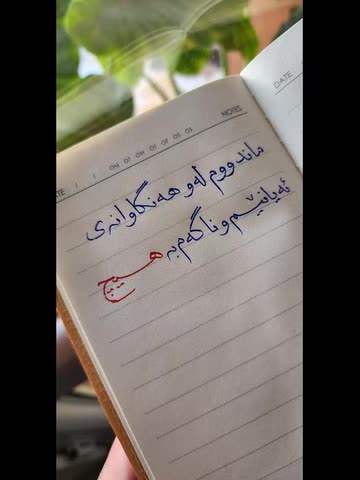 DATE
NOTES
DATE ( )
ماندووم لەو هەنگاوانەی
ئەیانێم و ناگەم بە هیچ